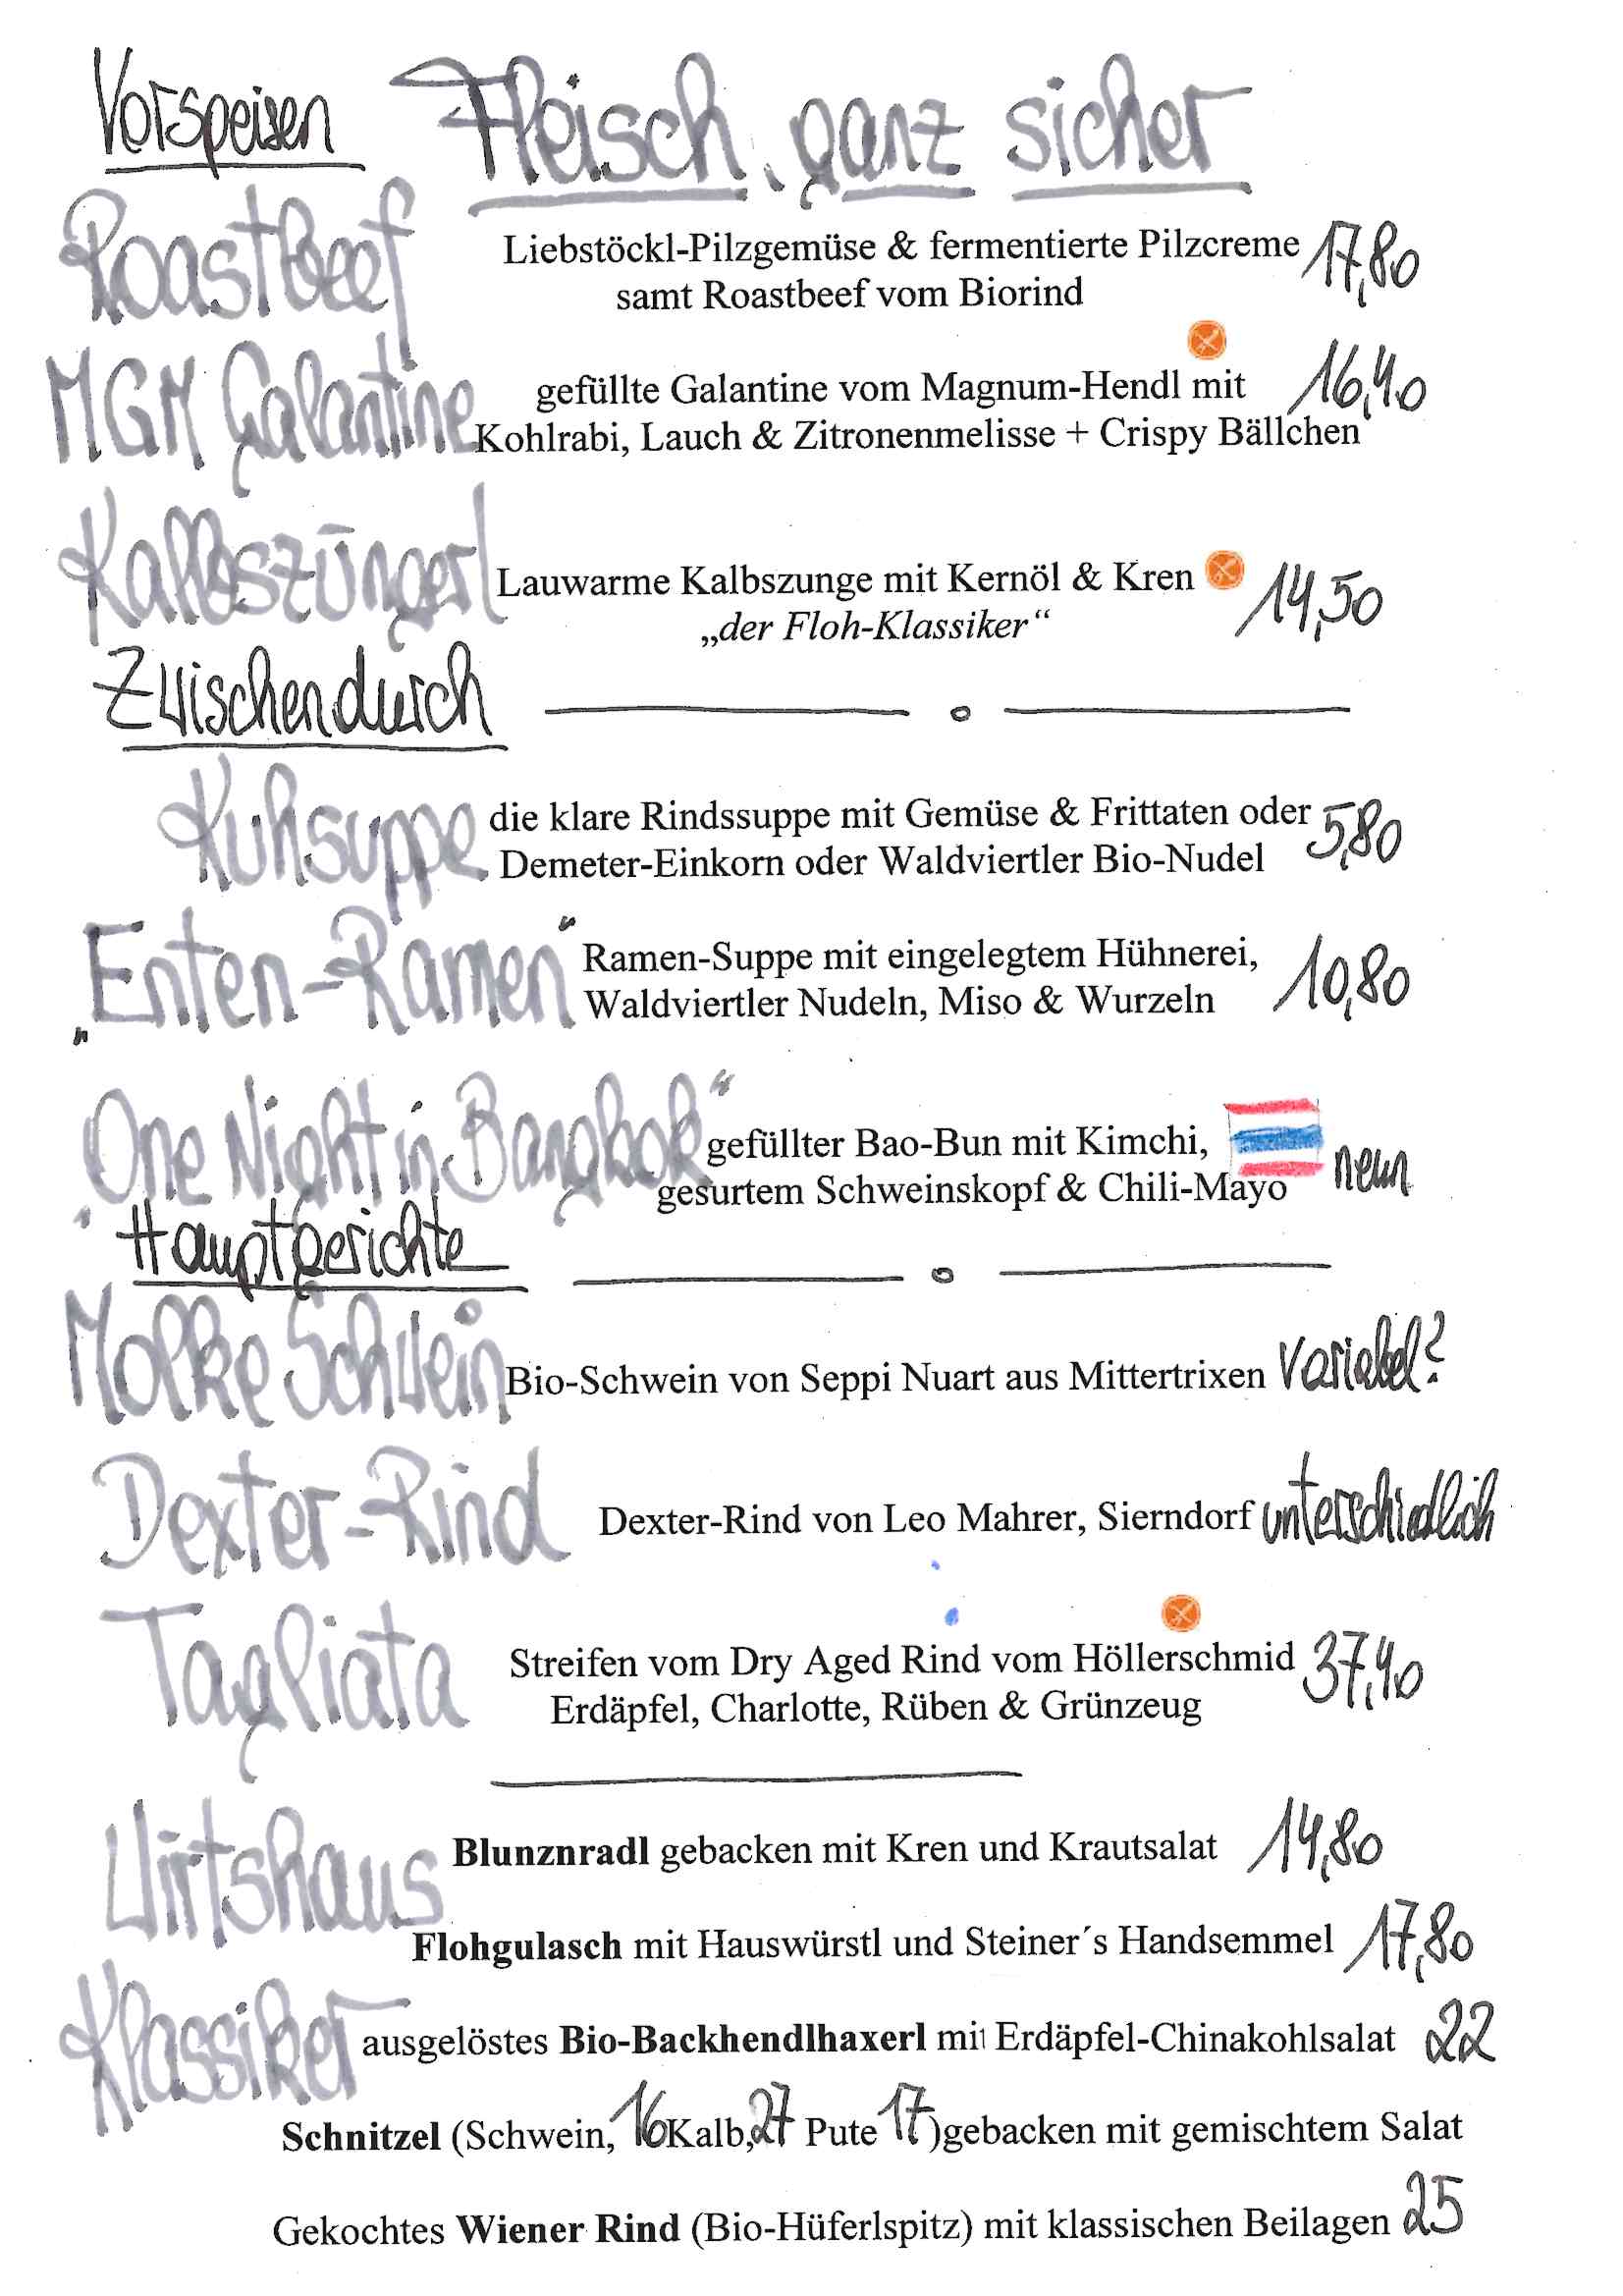 Vorspeisen Fleisch, ganz sicher
Roastbeef Liebstöckl-Pilzgemüse & fermentierte Pilzcreme 17,80
samt Roastbeef vom Biorind
MGM Galantine gefüllte Galantine vom Magnum-Hendl mit 16,40
Kohlrabi, Lauch & Zitronenmelisse + Crispy Bällchen
Kalbszüngerl Lauwarme Kalbszunge mit Kernöl & Kren 14,50
„der Floh-Klassiker“
Zwischendurch
Kuhsuppe die klare Rindssuppe mit Gemüse & Frittaten oder 5,80
Demeter-Einkorn oder Waldviertler Bio-Nudel
„Enten-Ramen“ Ramen-Suppe mit eingelegtem Hühnerei, 10,80
Waldviertler Nudeln, Miso & Wurzeln
„One Night in Bangkok“ gefüllter Bao-Bun mit Kimchi, neun
gesurtem Schweinskopf & Chili-Mayo
Hauptgerichte
Molke Schwein Bio-Schwein von Seppi Nuart aus Mittertrixen variabel?
Dexter-Rind Dexter-Rind von Leo Mahrer, Sierndorf unterschiedlich
Tagliata Streifen vom Dry Aged Rind vom Höllerschmid 37,40
Erdäpfel, Charlotte, Rüben & Grünzeug
Wirtshaus Blunznradl gebacken mit Kren und Krautsalat 14,80
Flohgulasch mit Hauswürstl und Steiner´s Handsemmel 17,80
Klassiker ausgelöstes Bio-Backhendlhaxerl mit Erdäpfel-Chinakohlsalat 22
Schnitzel (Schwein, 16 Kalb, 27 Pute 17 )gebacken mit gemischtem Salat
Gekochtes Wiener Rind (Bio-Hüferlspitz) mit klassischen Beilagen 25